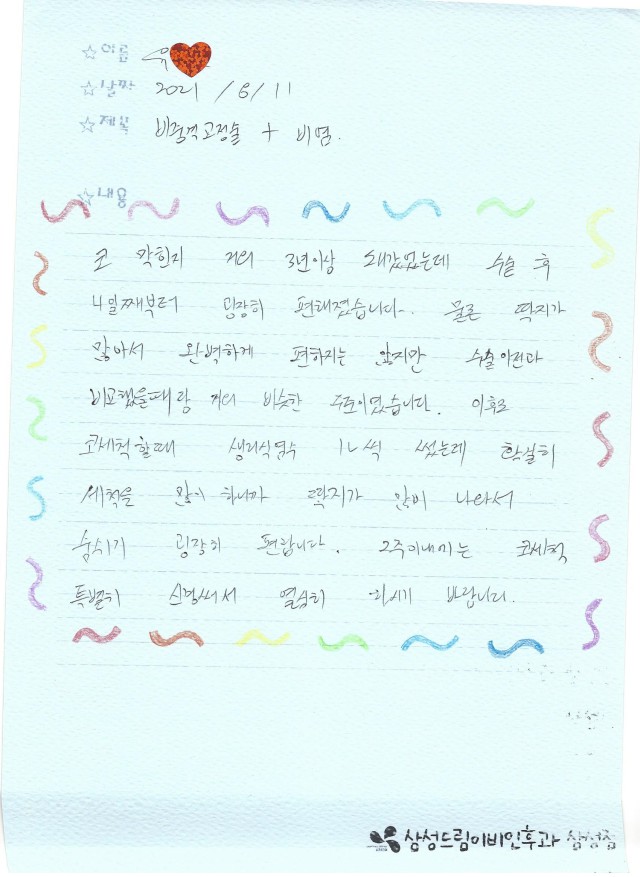 ☆이름 유
☆날짜 2021 / 6 / 11
☆제목 비중격고정술 + 비염.
☆내용
코 막힌지 거의 3년이상 돼갔었는데 수술 후
4일째부터 굉장히 편해졌습니다. 물론 딱지가
많아서 완벽하게 편하지는 않지만 수술이전과
비교했을때랑 거의 비슷한 수준이였습니다. 이후로
코세척할때 생리식염수 1L씩 썼는데 확실히
세척을 많이 하니까 딱지가 많이 나와서
숨쉬기 굉장히 편합니다. 2주이내에는 코세척
특별히 신경써서 열심히 하시기 바랍니다.
삼성드림이비인후과 삼성점